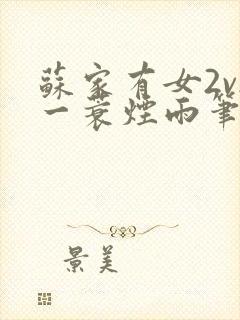 蘇家有女2v
一蓑煙雨筆
景美